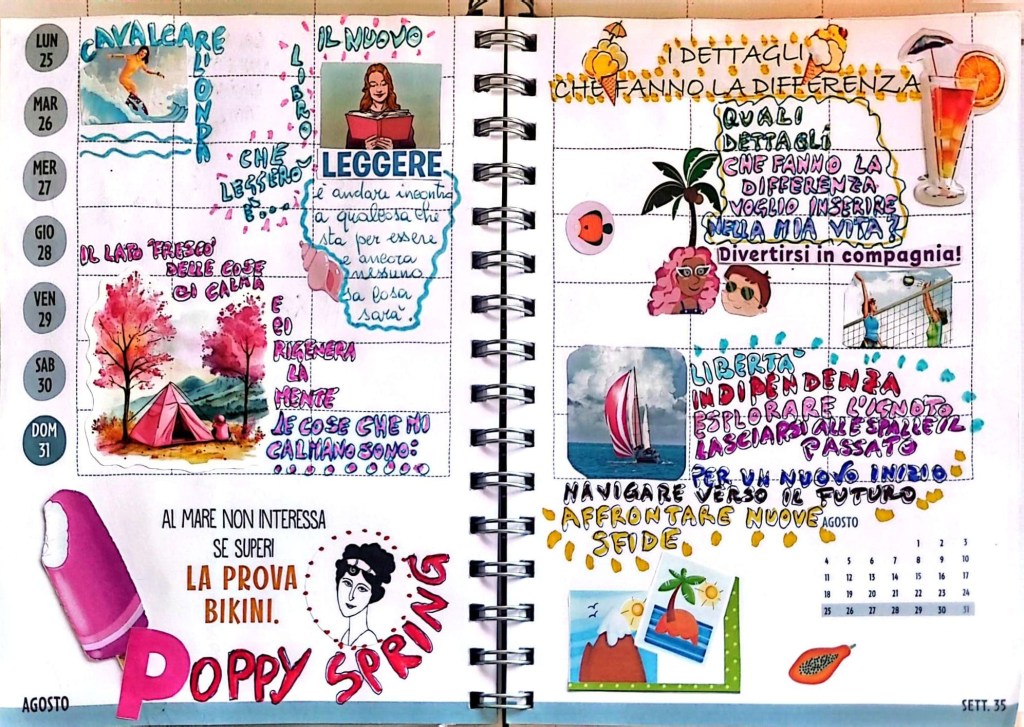 LUN
25
MAR
26
MER
27
GIO
28
VEN
29
SAB
30
DOM
31
CAVALCARE
L'ONDA
IL NUOVO
LIBRO
CHE
LEGGERÒ
È....
LEGGERE
è andare incontro
a qualcosa che
sta per essere
e ancora
nessuno
sa cosa
sarà.
IL LATO "FRESCO"
DELLE COSE
CI CALMA
E
CI
RIGENERA
LA
MENTE
LE COSE CHE MI
CALMANO SONO:
AL MARE NON INTERESSA
SE SUPERI
LA PROVA
BIKINI.
POPPY SPRING
AGOSTO
I DETTAGLI
CHE FANNO LA DIFFERENZA
QUALI
DETTAGLI
CHE FANNO LA
DIFFERENZA
VOGLIO INSERIRE
NELLA MIA VITA?
Divertirsi in compagnia!
LIBERTÀ
INDIPENDENZA
ESPLORARE L'IGNOTO
LASCIARSI ALLE SPALLE IL
PASSATO
PER UN NUOVO INIZIO
NAVIGARE VERSO IL FUTURO
AFFRONTARE NUOVE
SFIDE
AGOSTO
1 2 3
4 5 6 7 8 9 10
11 12 13 14 15 16 17
18 19 20 21 22 23 24
25 26 27 28 29 30 31
SETT. 35